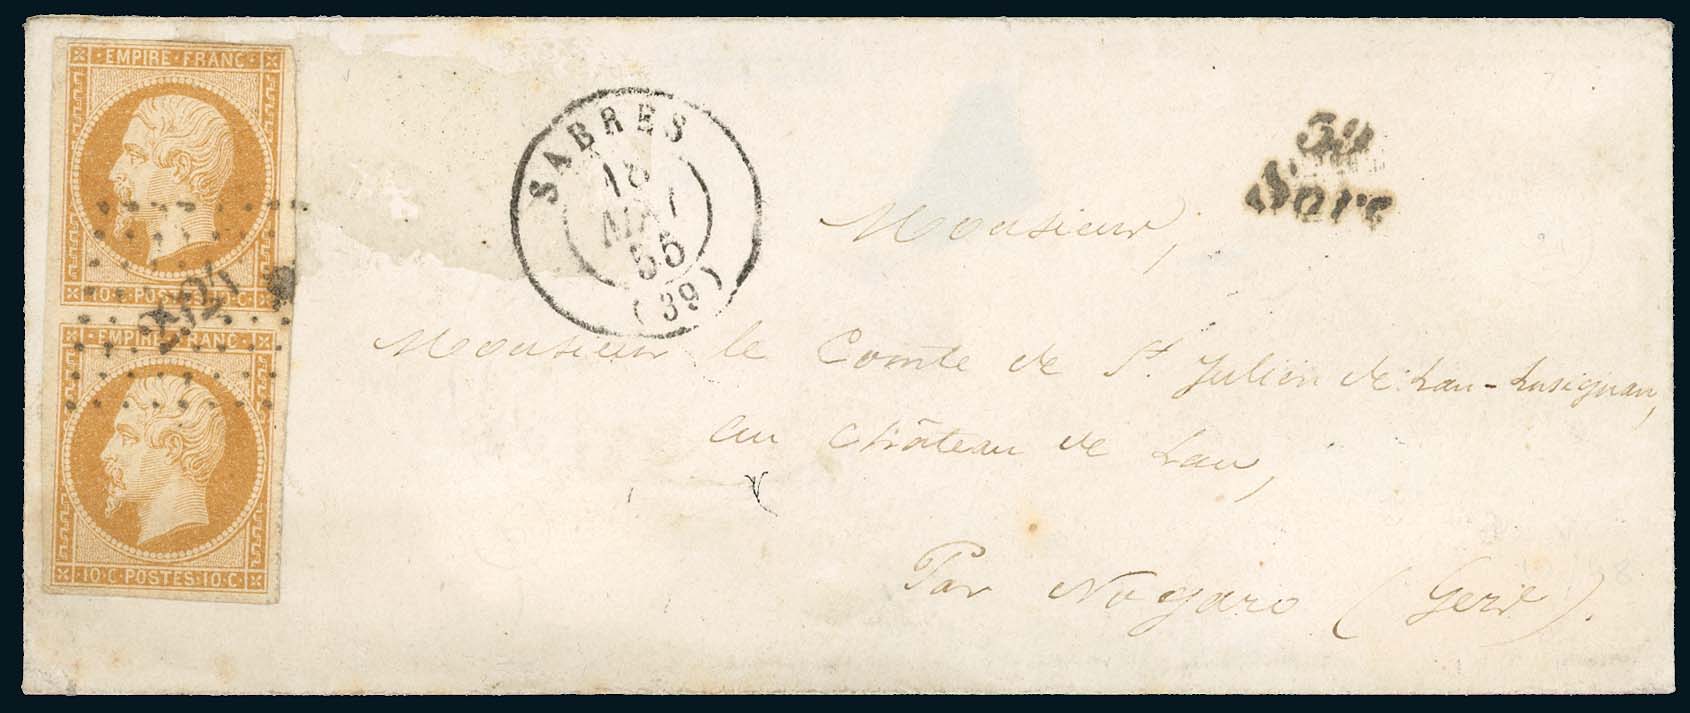 EMPIRE · FRANC ·
10 · C · POSTES · 10 · C ·
EMPIRE · FRANC ·
10 · C · POSTES · 10 · C ·
SABRES
18
MAI
55
(39)
39
Sore
Monsieur,
Monsieur le Comte de St. Julien de Lau-Lusignan,
au Château de Lau,
Par Nogaro (Gers).